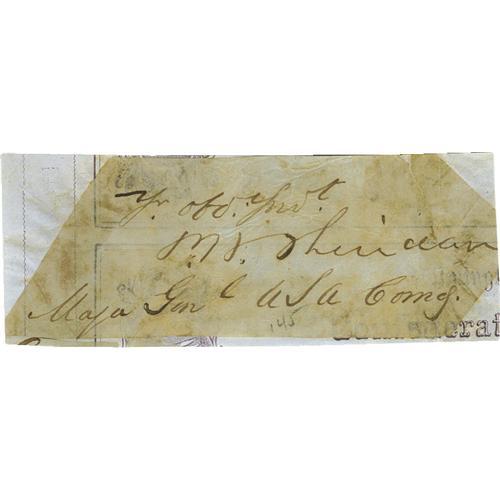 Yr. obd. Srvt.
P. H. Sheridan
Maja Genl USA Comg.
145
Confederat